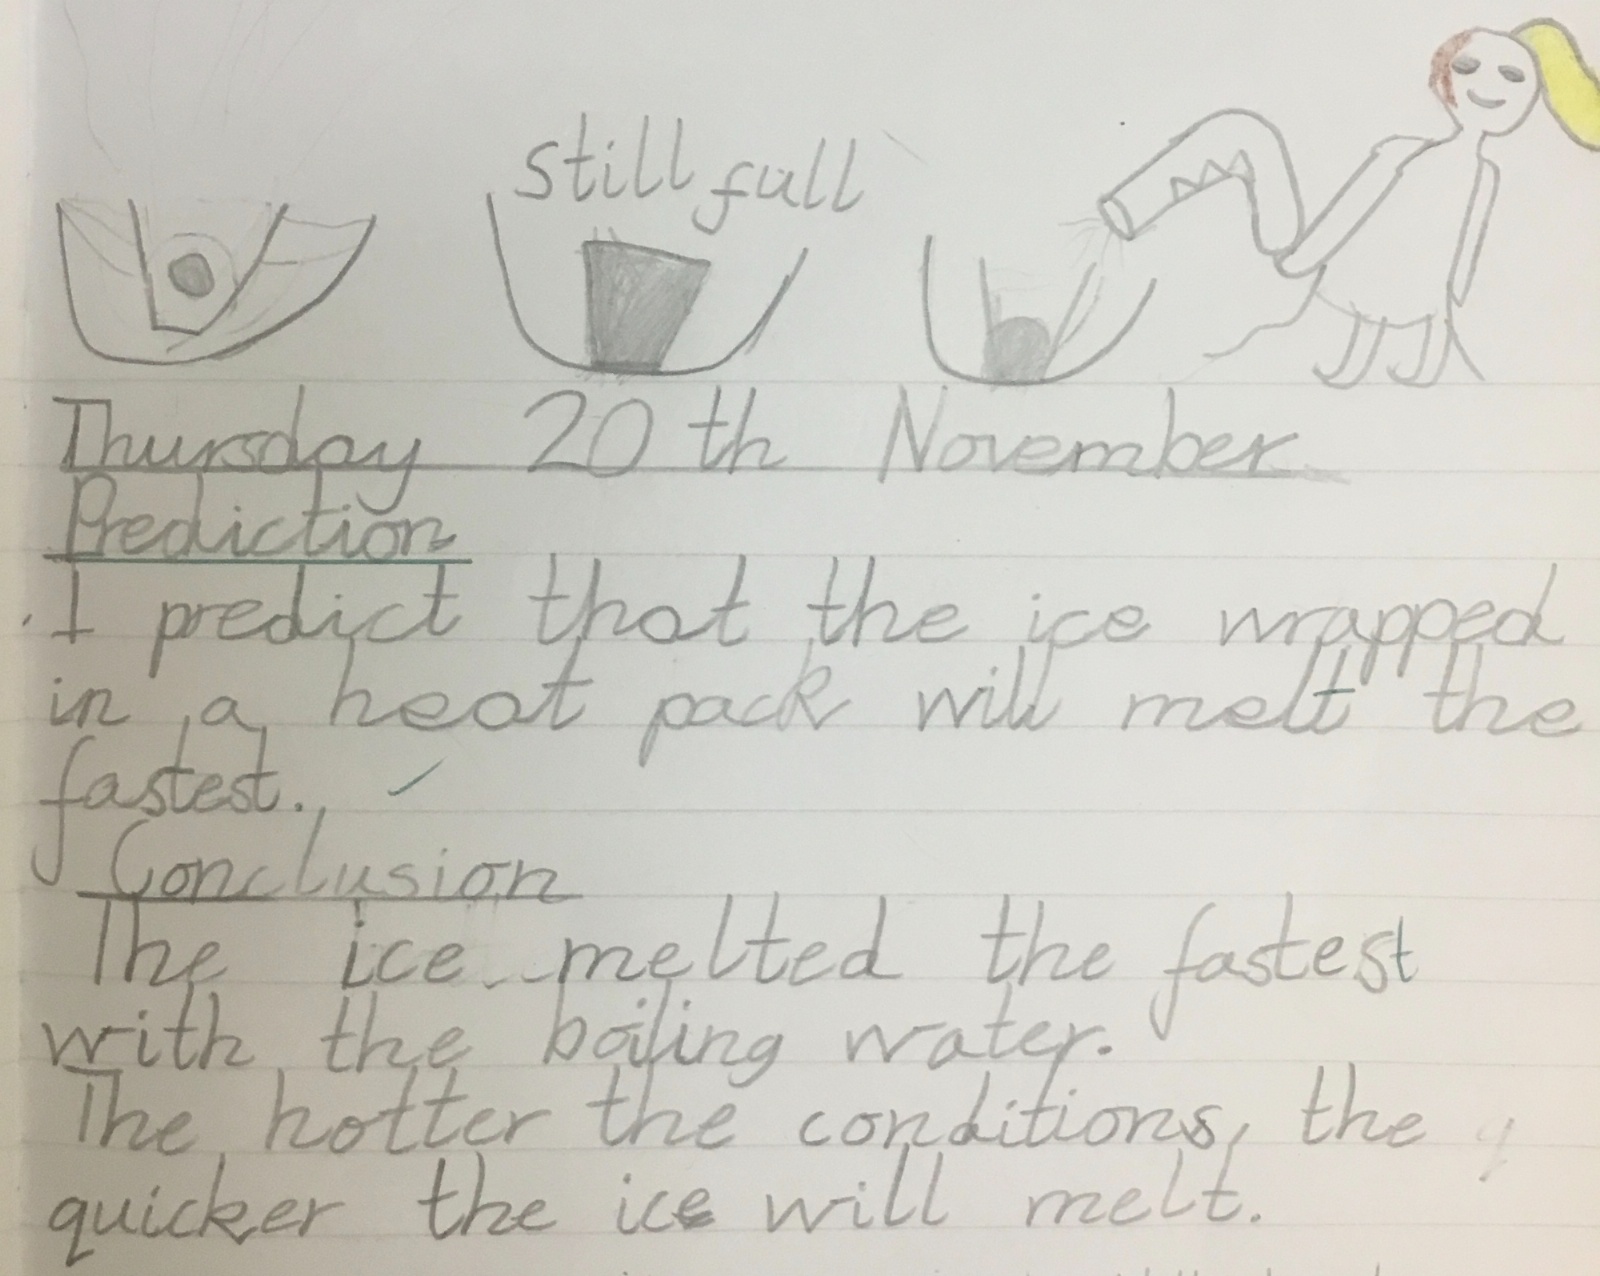 still full
Thursday 20th November
Prediction
I predict that the ice wrapped
in a heat pack will melt the
fastest.
Conclusion
The ice melted the fastest
with the boiling water.
The hotter the conditions, the
quicker the ice will melt.